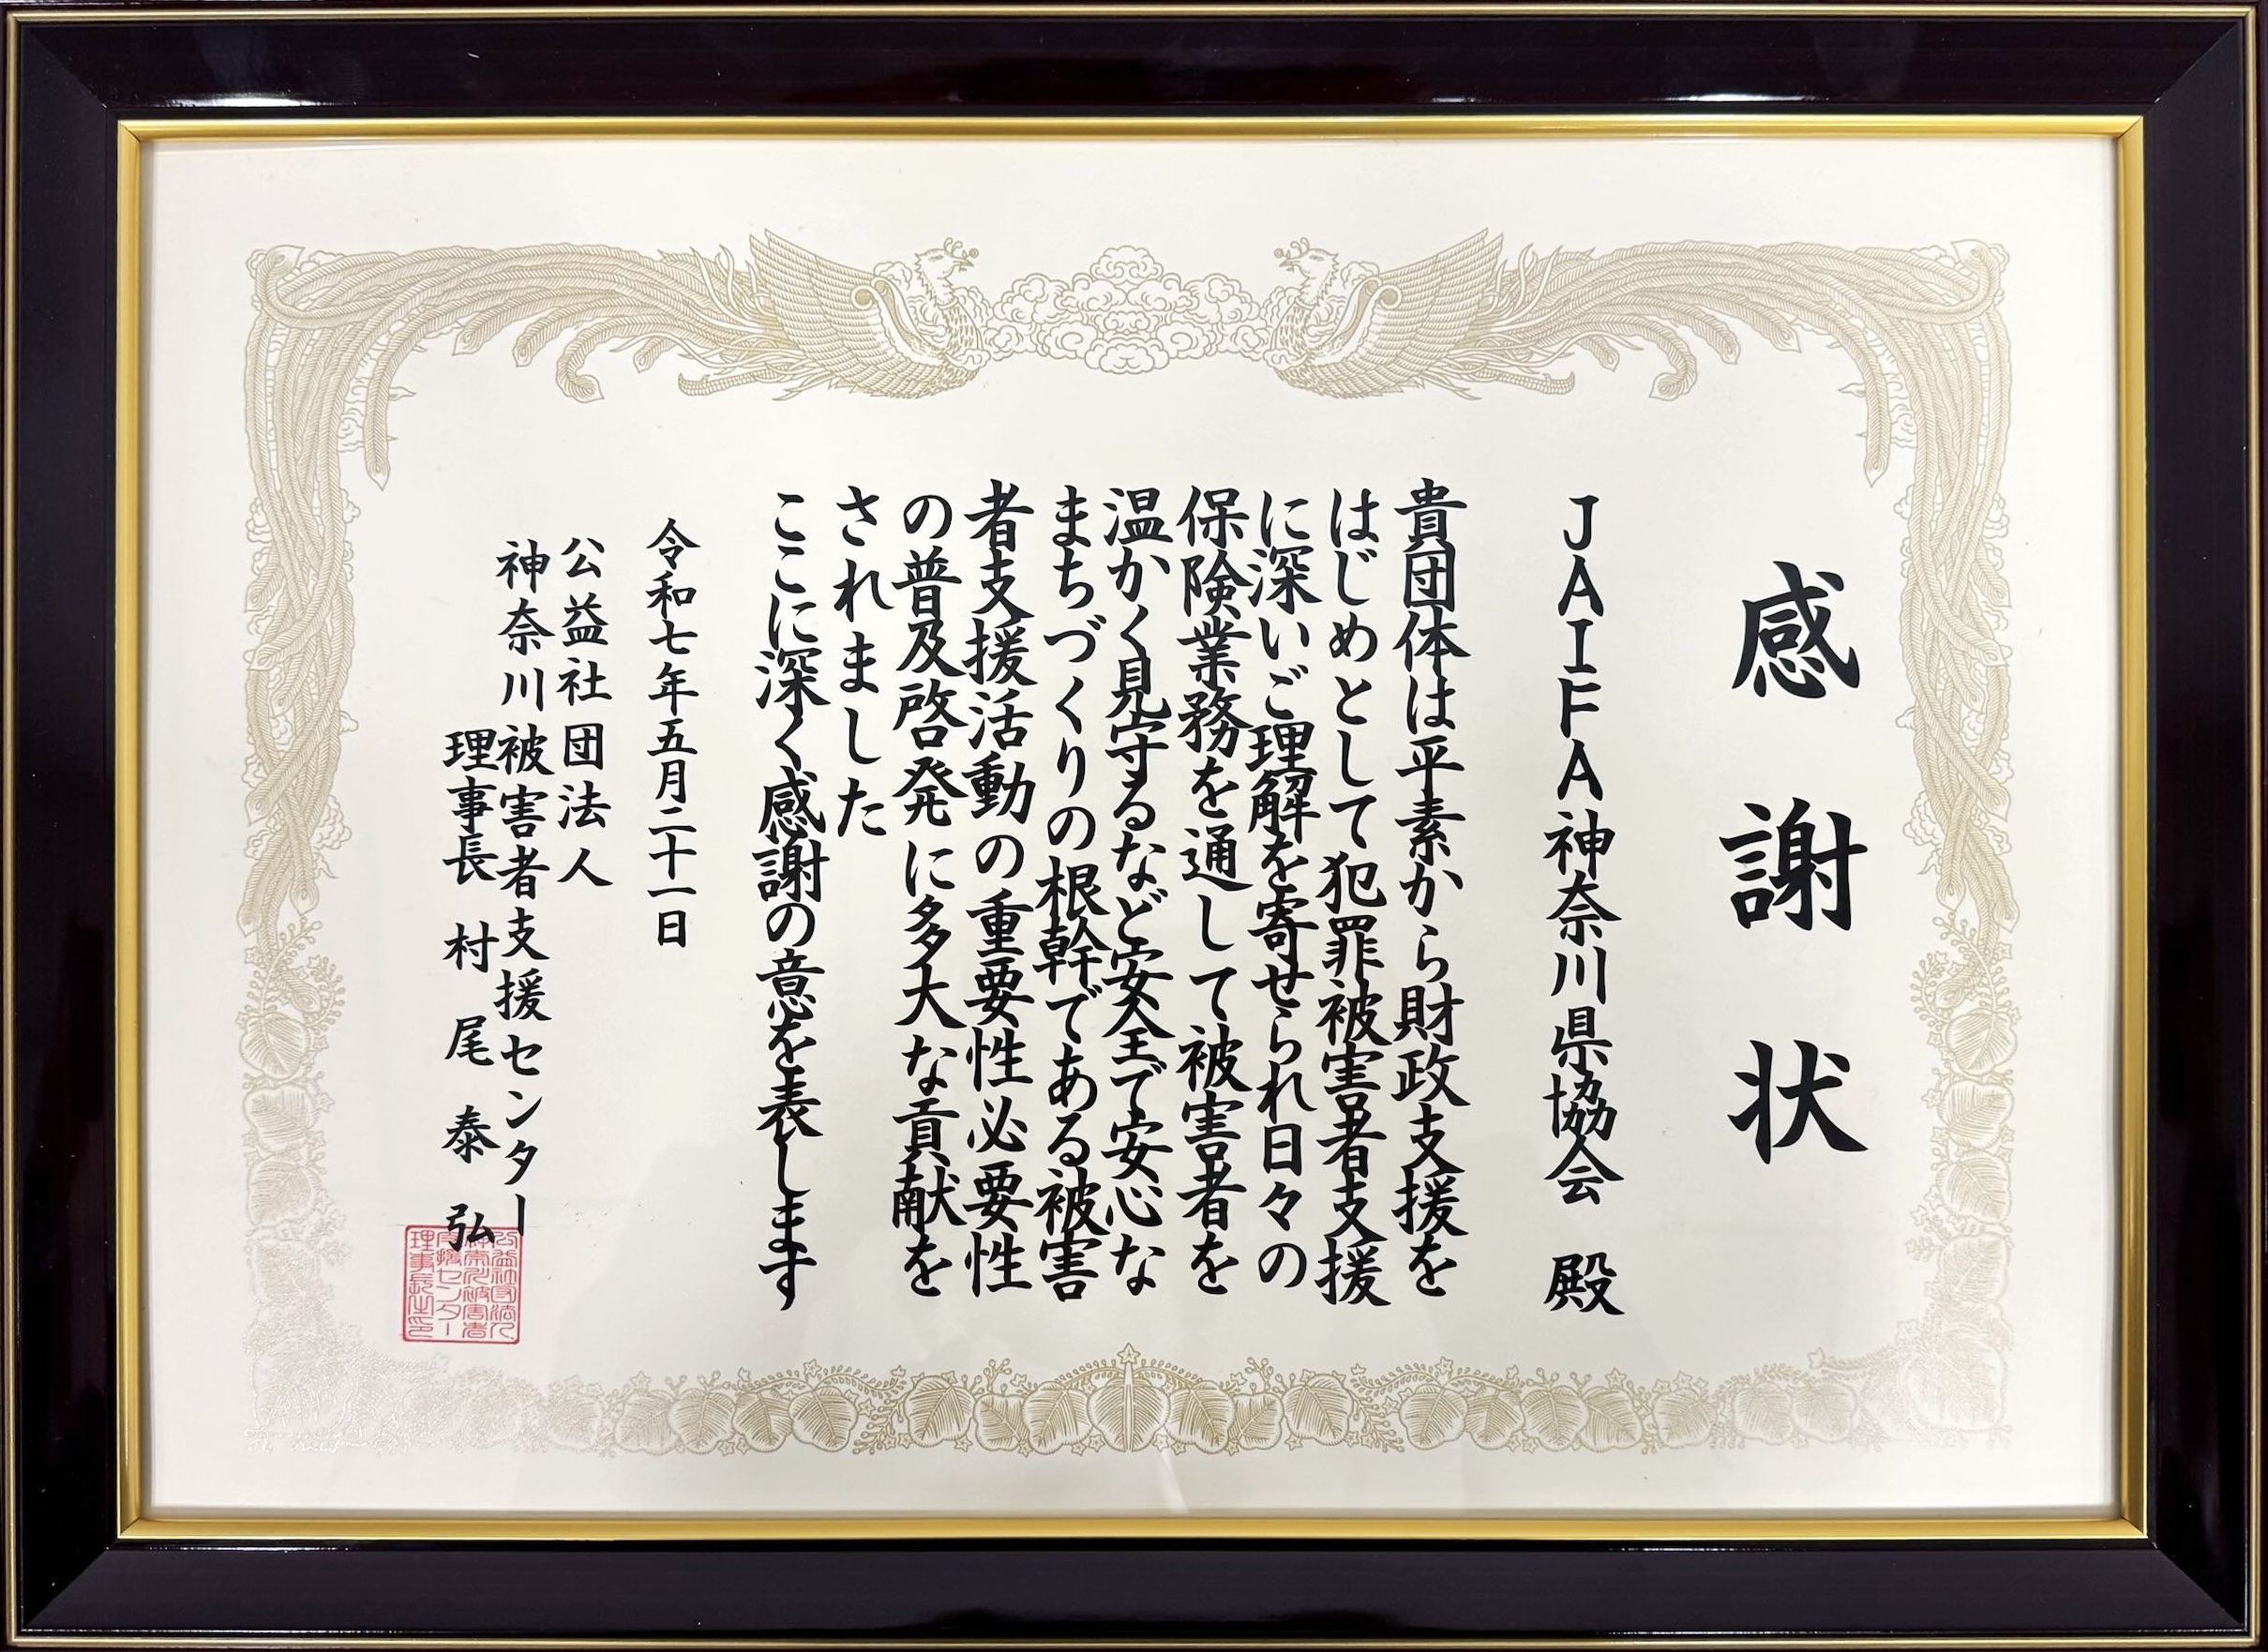 感謝状
JAIFA神奈川県協会 殿
貴団体は平素から財政支援を
はじめとして犯罪被害者支援
に深いご理解を寄せられ日々の
保険業務を通して被害者を
温かく見守るなど安全で安心な
まちづくりの根幹である被害
者支援活動の重要性必要性
の普及啓発に多大な貢献を
されました
ここに深く感謝の意を表します
令和七年五月二十一日
公益社団法人
神奈川被害者支援センター
理事長 村尾泰弘
公益社団法人
神奈川被害者
支援センター
理事長之印